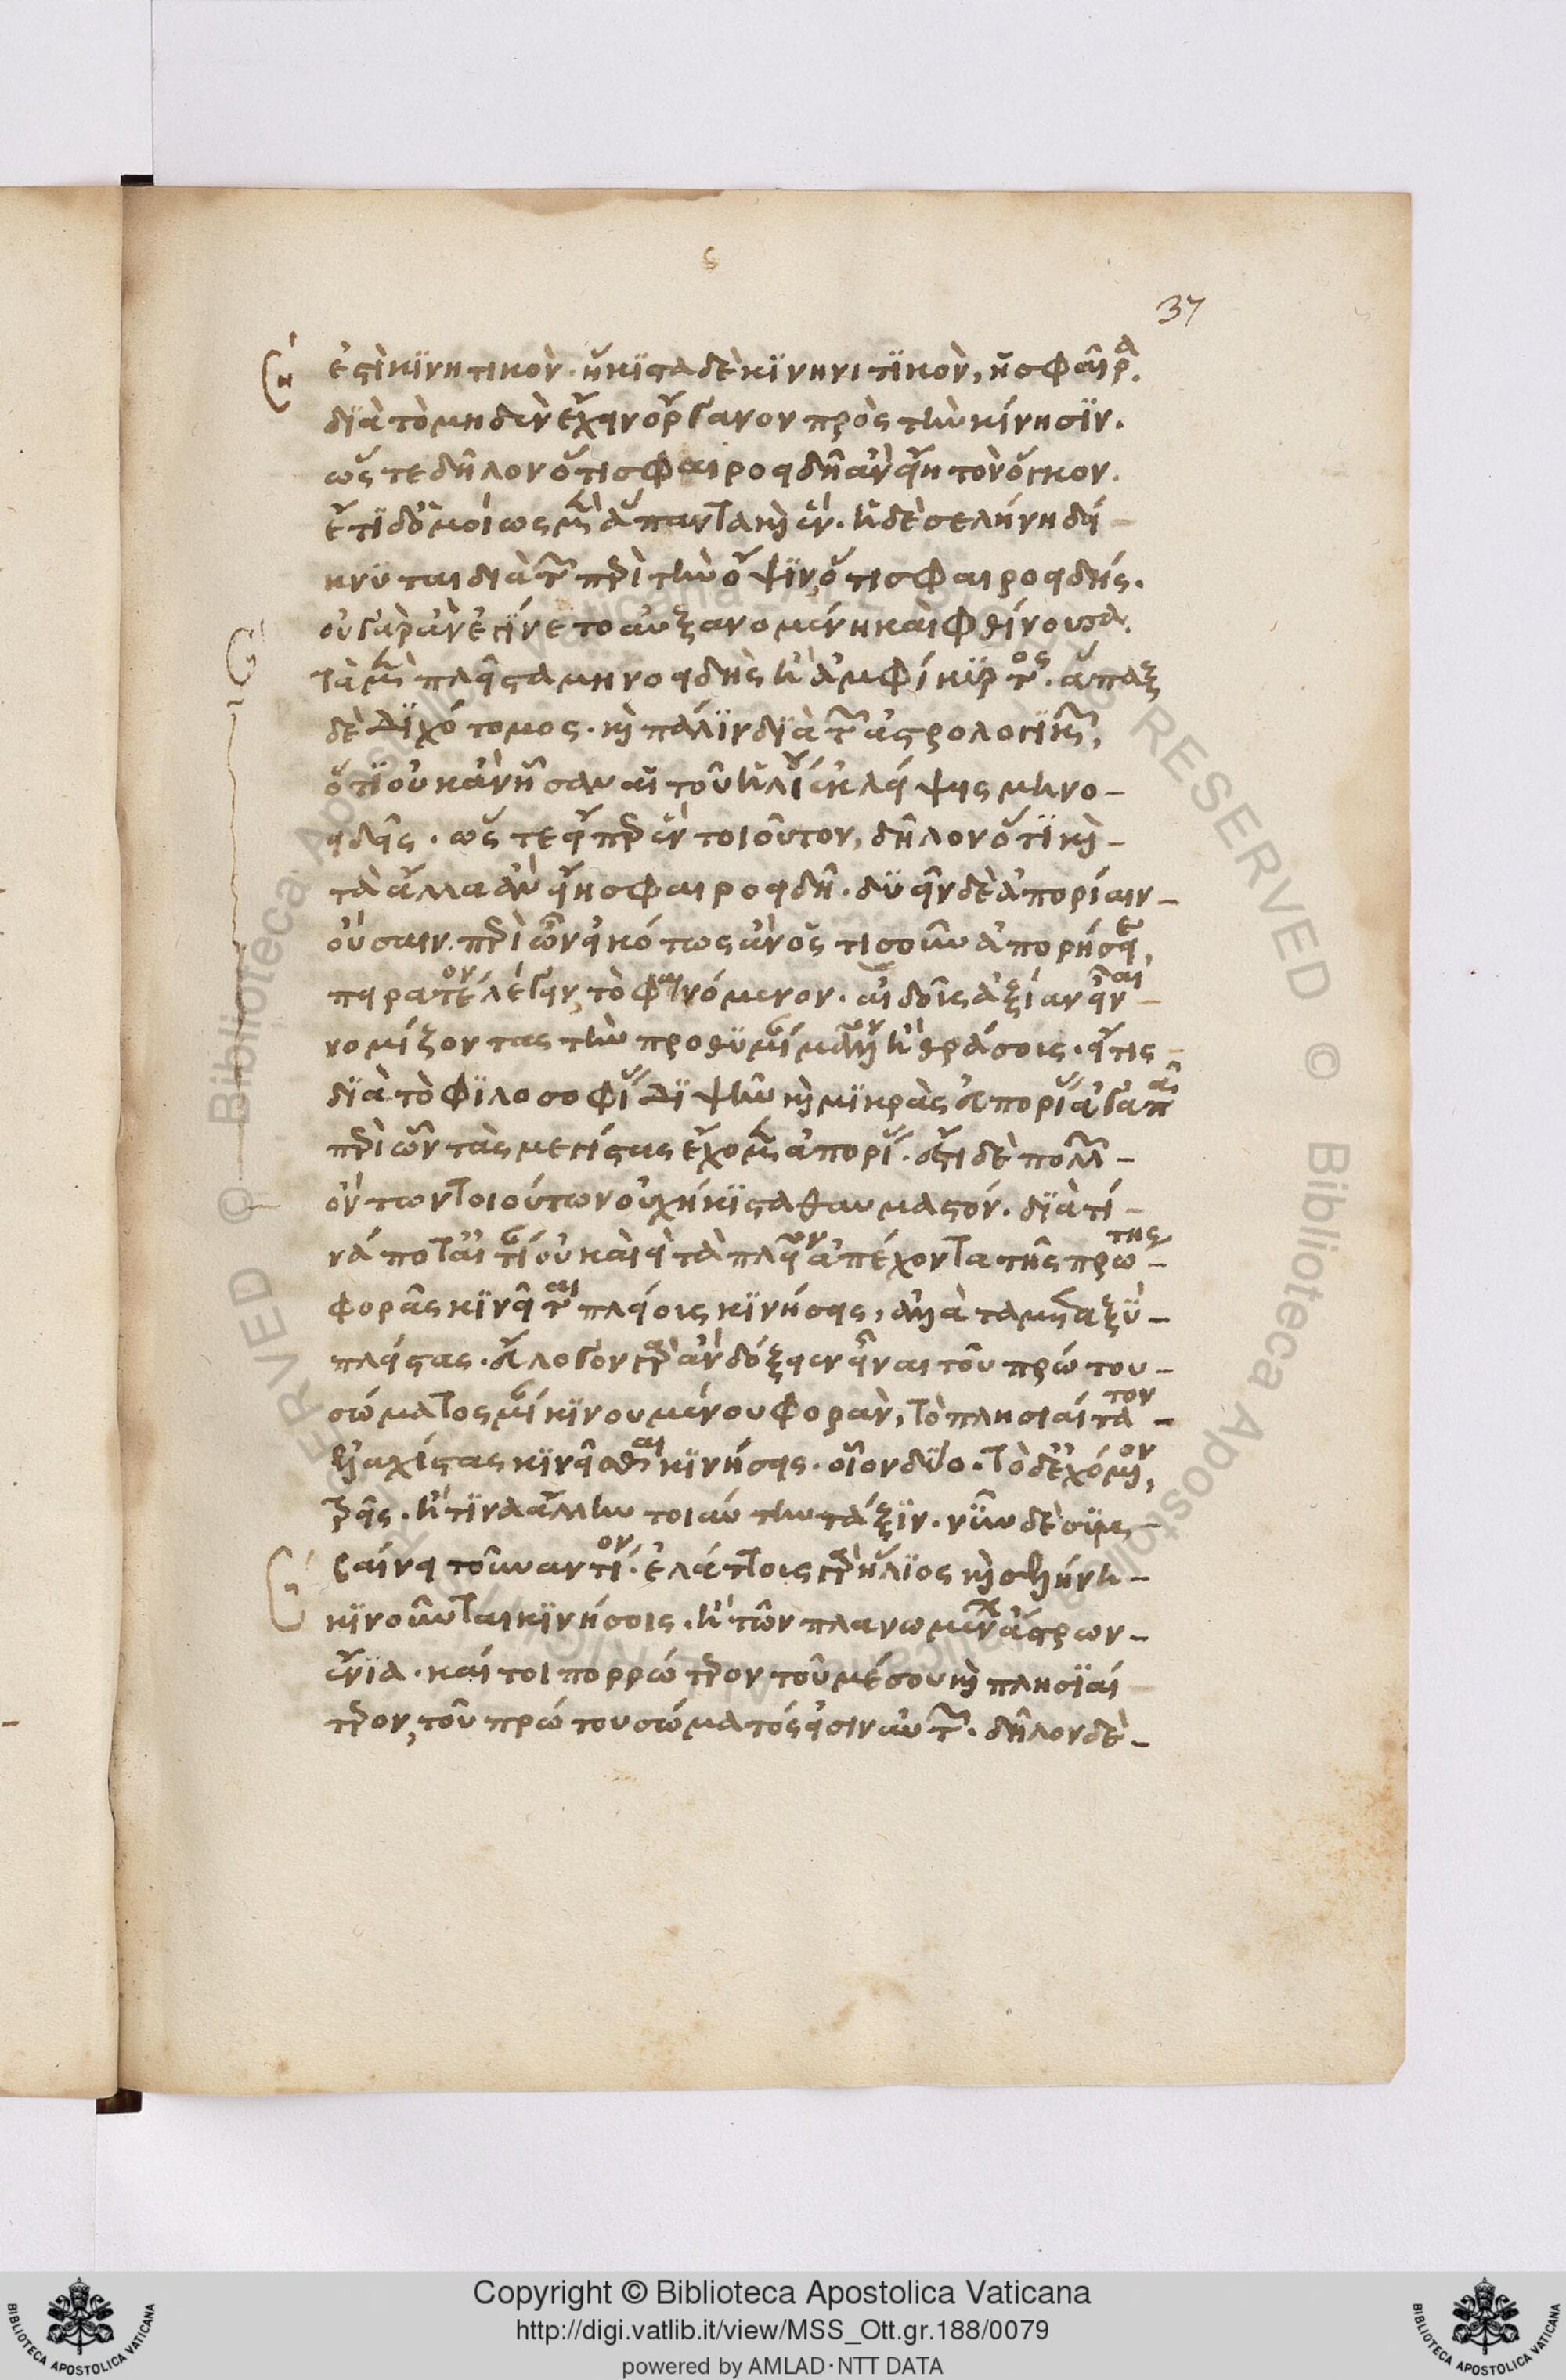 37
ἐστὶ κινητικόν. ἥκιστα δὲ κινητικὸν, ἡ σφαῖρα.
διὰ τὸ μηδὲν ἔχειν ὄργανον πρὸς τὴν κίνησιν.
ὥστε δῆλον ὅτι σφαιροειδῆ ἂν εἴη τὸν ὄγκον.
ἔτι δ' ὁμοίως μὲν ἅπαντα καὶ ἕν. ἡ δὲ σελήνη δεί-
κνυται διὰ τῶν περὶ τὴν ὄψιν, ὅτι σφαιροειδής.
οὐ γὰρ ἂν ἐγίνετο αὐξανομένη καὶ φθίνουσα.
τὰ μὲν πλεῖστα μηνοειδὴς ἢ ἀμφίκυρτος. ἅπαξ
δὲ διχότομος. καὶ πάλιν διὰ τῶν ἀστρολογικῶν,
ὅτι οὐκ ἂν ἦσαν αἱ τοῦ ἡλίου ἐκλείψεις μηνο-
ειδεῖς. ὥστε εἴπερ ἓν τοιοῦτον, δῆλον ὅτι καὶ
τὰ ἄλλα ἂν εἴη σφαιροειδῆ. δυεῖν δὲ ἀπορίαιν
οὔσαιν. περὶ ὧν εἰκότως ἂν ὅστισοῦν ἀπορήσειε,
πειρατέον λέγειν, τὸ φαινόμενον. αἰδοῦς ἀξίαν εἶναι
νομίζοντας τὴν προθυμίαν μᾶλλον ἢ θράσους. εἴ τις
διὰ τὸ φιλοσοφίας διψῆν καὶ μικρὰς ἀπορίας ἀγαπᾷ
περὶ ὧν τὰς μεγίστας ἔχομεν ἀπορίας. ἔστι δὲ πολλῶν
ὄντων τοιούτων οὐχ ἥκιστα θαυμαστόν. διὰ τί-
νά ποτ' αἰτίαν οὐκ ἀεὶ τὰ πλεῖον ἀπέχοντα τῆς πρώτης
φορᾶς κινεῖται πλείους κινήσεις, ἀλλὰ τὰ μεταξὺ
πλείστας. εὔλογον γὰρ ἂν δόξειεν εἶναι τοῦ πρώτου
σώματος μίαν κινουμένου φορὰν, τὸ πλησιαίτατον
ἐλαχίστας κινεῖσθαι κινήσεις. οἷον δύο. τὸ δ' ἐχόμενον,
τρεῖς. ἤ τινα ἄλλην τοιαύτην τάξιν. νῦν δὲ συμ-
βαίνει τοὐναντίον. ἐλάττους γὰρ ἥλιος καὶ σελήνη
κινοῦνται κινήσεις. ἢ τῶν πλανωμένων ἄστρων
ἔνια. καίτοι πορρώτερον τοῦ μέσου καὶ πλησιαί-
τερον, τοῦ πρώτου σώματός εἰσιν αὐτῶν. δῆλον δὲ
RESERVED © Biblioteca Apostolica Vaticana
Copyright © Biblioteca Apostolica Vaticana
http://digi.vatlib.it/view/MSS_Ott.gr.188/0079
powered by AMLAD·NTT DATA
BIBLIOTECA APOSTOLICA VATICANA
BIBLIOTECA APOSTOLICA VATICANA